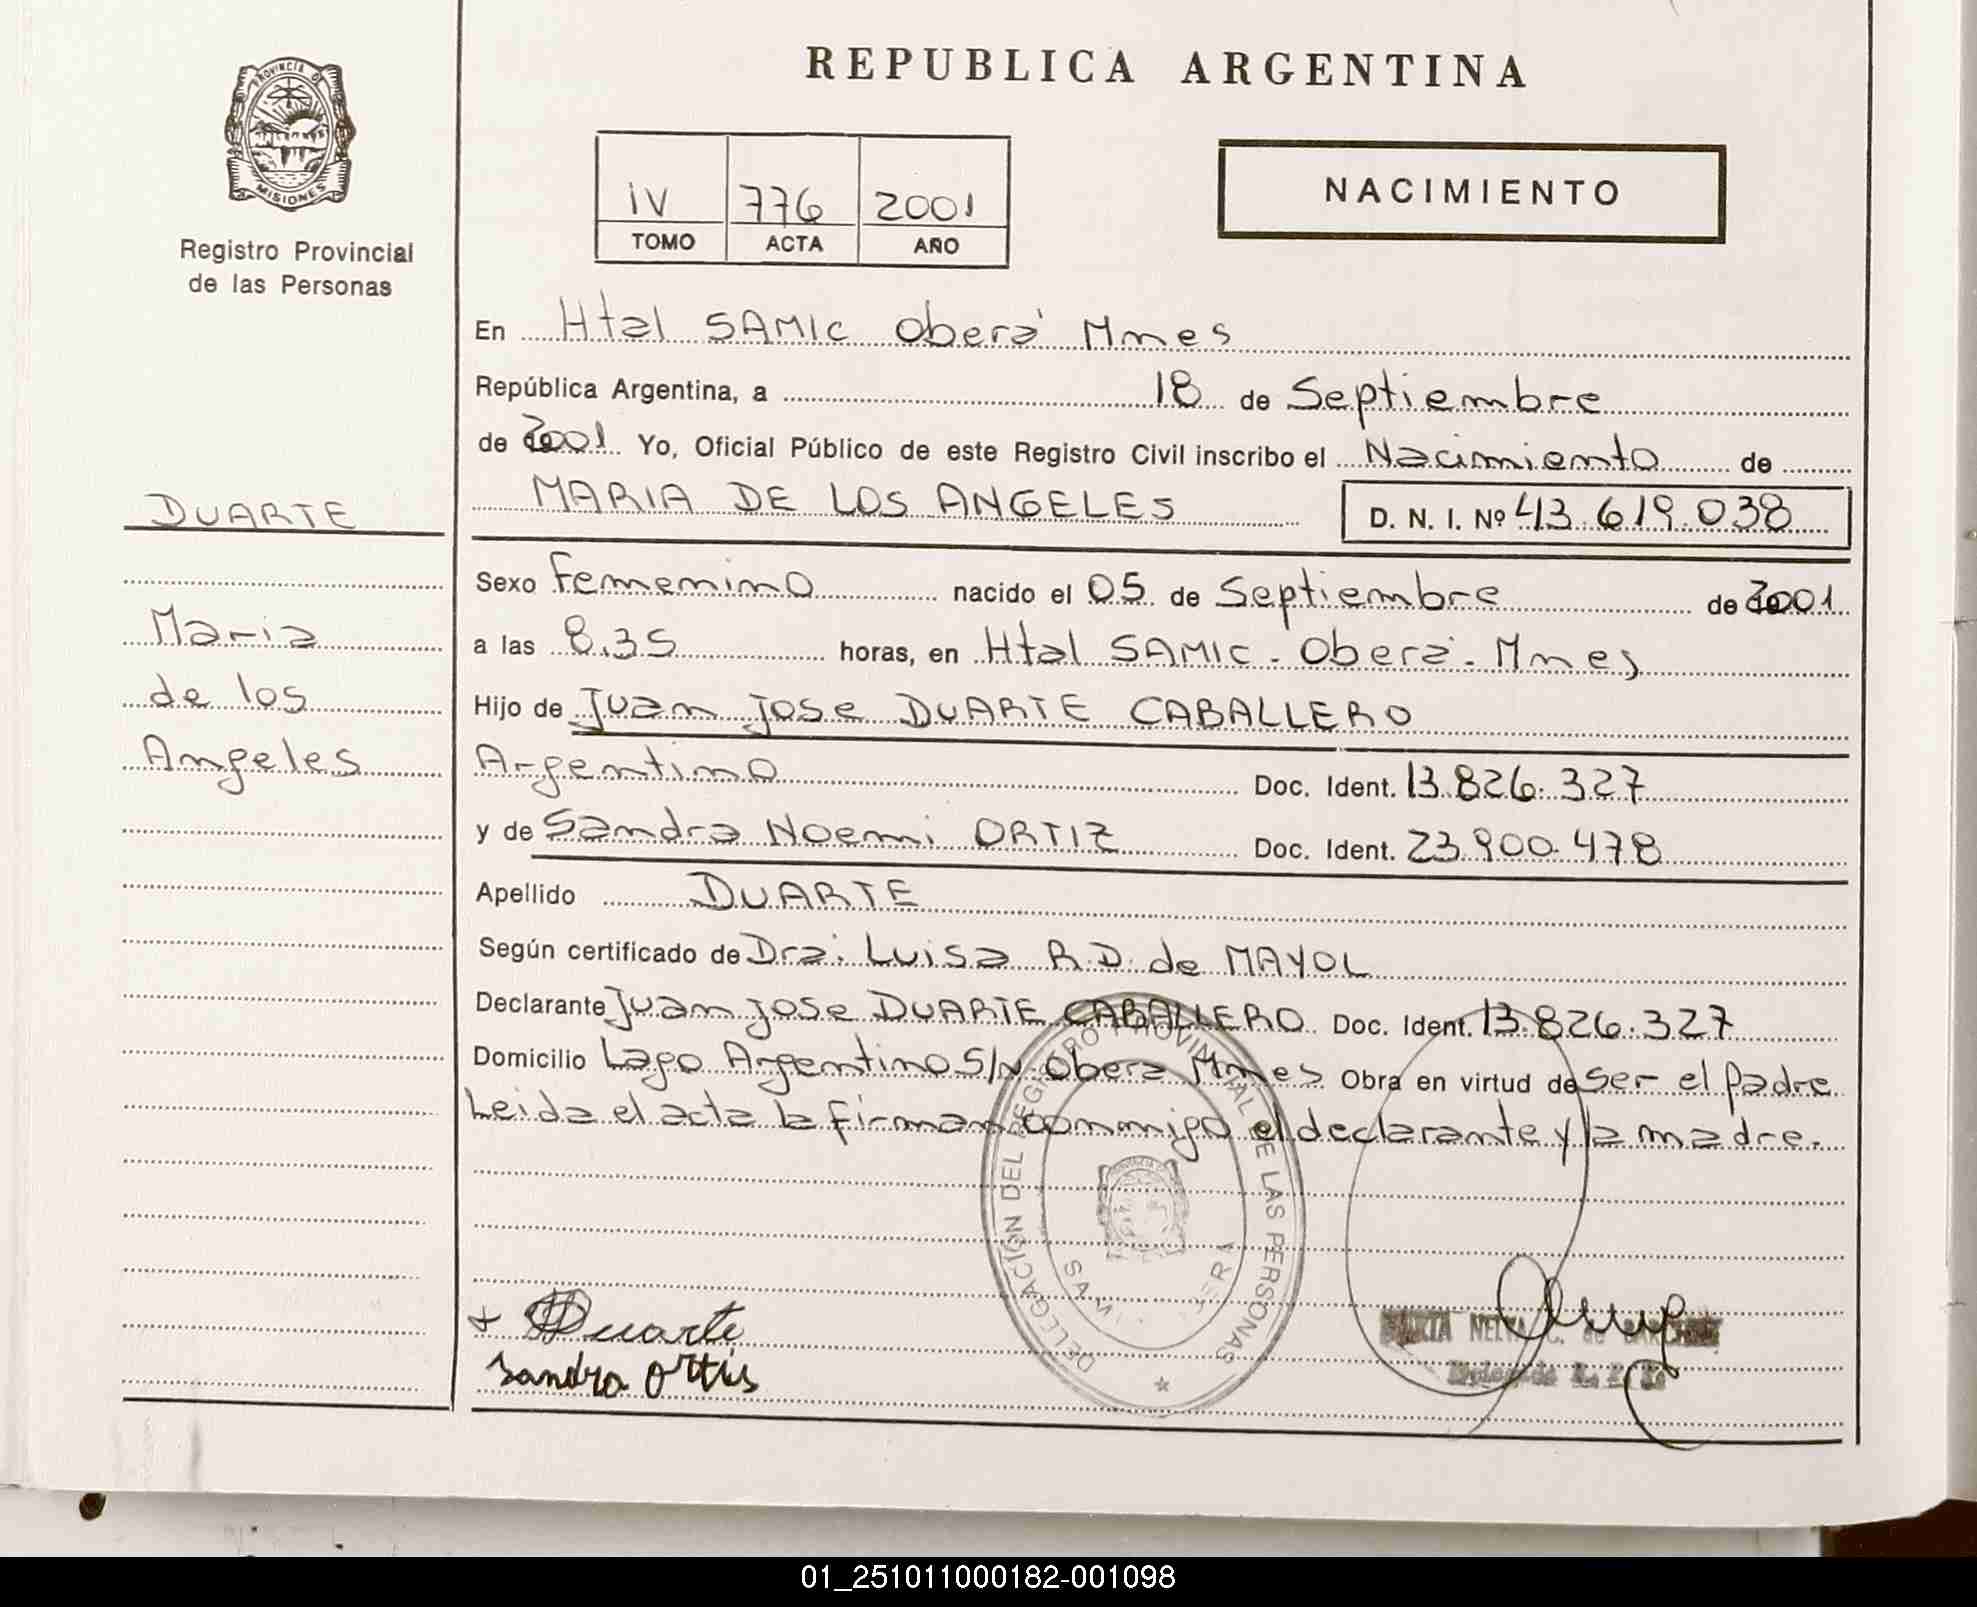 REPUBLICA ARGENTINA
PROVINCIA D
MISIONES
Registro Provincial
de las Personas
iV 776 2001
TOMO ACTA AÑO
NACIMIENTO
En Htal SAMIC Oberá Mnes
República Argentina, a 18 de Septiembre
de 2001 Yo, Oficial Público de este Registro Civil inscribo el Nacimiento de
MARIA DE LOS ANGELES D. N. I. Nº 43.619.038
DUARTE
Maria
de los
Angeles
Sexo Femenino nacido el 05 de Septiembre de 2001
a las 8.35 horas, en Htal SAMIC - Oberá - Mnes
Hijo de Juan Jose DUARTE CABALLERO
Argentino Doc. Ident. 13.826.327
y de Sandra Noemi ORTIZ Doc. Ident. 23.900.478
Apellido DUARTE
Según certificado de Dra. Luisa R.D. de MAYOL
Declarante Juan Jose DUARTE CABALLERO Doc. Ident. 13.826.327
Domicilio Lago Argentino S/N Obera Mnes Obra en virtud de ser el padre
Leida el acta la firman conmigo el declarante y la madre.
DELEGACIÓN DEL REGISTRO PROVINCIAL DE LAS PERSONAS
+ Duarte
Sandra Ortis
01_251011000182-001098